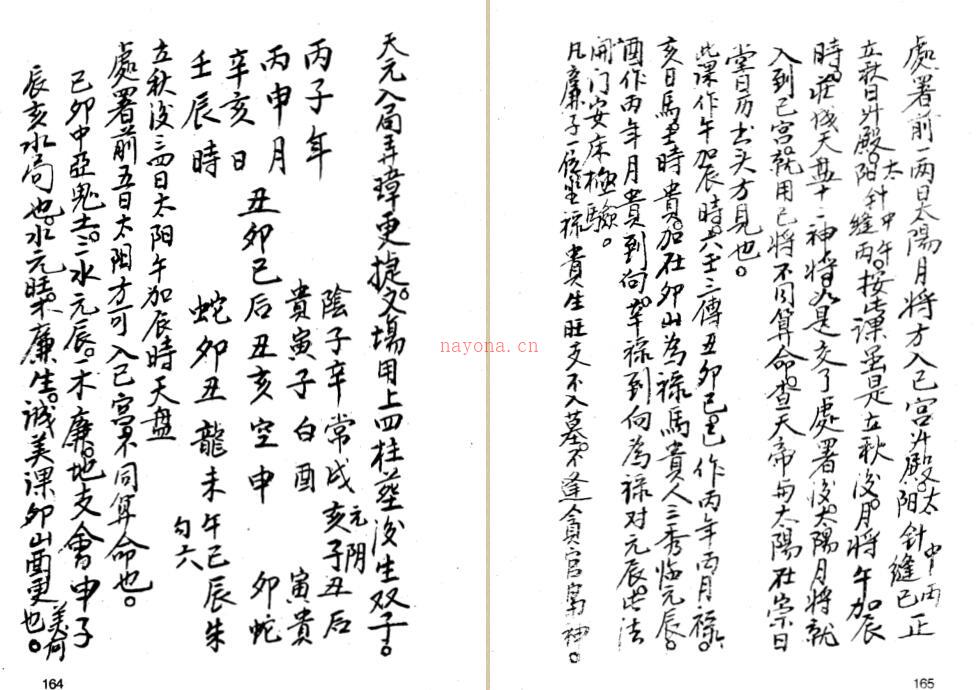 天元入局弄璋更捷。場用上四柱葬後生双子。
丙子年
丙申月
辛亥日
壬辰時
陰子辛常戌亥子丑后
元阴
貴寅子白酉 寅貴
丑卯巳后丑亥空申 卯蛇
蛇卯丑龍未午巳辰朱
勾六
立秋後三四日太阳午加辰時天盘
處署前五日太阳方可入巳宮不同算命也。
己卯中亞鬼土。二水元辰。木廉。地支會申子
辰亥水局也。水元旺。木廉生。誠美課卯山酉更美向也。
164
處署前一兩日太陽月將方入巳宮升殿。太阳中針丙縫巳正
立秋日升殿。太阳中針午縫丙。按此課虽是立秋後。月將午加辰
時。莊成天盘十二神將。必是交了處署後。太陽月將就
入到巳宮就用巳將不同算命。查天帝与太陽在崇日
當另出头方見也。
此課作午加辰時。六壬三傳丑卯巳巳作丙年丙月禄。
亥日馬壬時貴。加在卯山為禄馬貴人三秀临元辰。
酉作丙年月貴到向。辛禄到向為禄对元辰。此法
開门安床極驗。
凡廉子一位坐禄貴生旺支不入墓。不逢貪官神。
165
nayona.cn